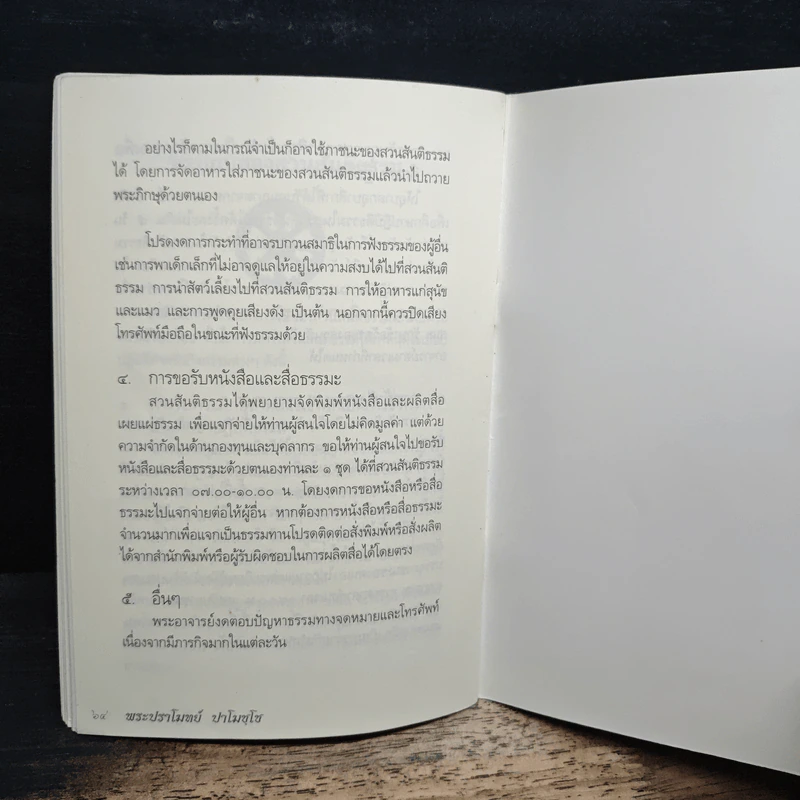 อย่างไรก็ตามในกรณีจำเป็นก็อาจใช้ภาชนะของสวนสันติธรรม
ได้ โดยการจัดอาหารใส่ภาชนะของสวนสันติธรรมแล้วนำไปถวาย
พระภิกษุด้วยตนเอง
โปรดงดการกระทำที่อาจรบกวนสมาธิในการฟังธรรมของผู้อื่น
เช่นการพาเด็กเล็กที่ไม่อาจดูแลให้อยู่ในความสงบได้ไปที่สวนสันติ
ธรรม การนำสัตว์เลี้ยงไปที่สวนสันติธรรม การให้อาหารแก่สุนัข
และแมว และการพูดคุยเสียงดัง เป็นต้น นอกจากนี้ควรปิดเสียง
โทรศัพท์มือถือในขณะที่ฟังธรรมด้วย
๔. การขอรับหนังสือและสื่อธรรมะ
สวนสันติธรรมได้พยายามจัดพิมพ์หนังสือและผลิตสื่อ
เผยแผ่ธรรม เพื่อแจกจ่ายให้ท่านผู้สนใจโดยไม่คิดมูลค่า แต่ด้วย
ความจำกัดในด้านกองทุนและบุคลากร ขอให้ท่านผู้สนใจไปขอรับ
หนังสือและสื่อธรรมะด้วยตนเองท่านละ ๑ ชุด ได้ที่สวนสันติธรรม
ระหว่างเวลา ๐๗.๐๐-๑๐.๐๐ น. โดยงดการขอหนังสือหรือสื่อ
ธรรมะไปแจกจ่ายต่อให้ผู้อื่น หากต้องการหนังสือหรือสื่อธรรมะ
จำนวนมากเพื่อแจกเป็นธรรมทานโปรดติดต่อสั่งพิมพ์หรือสั่งผลิต
ได้จากสำนักพิมพ์หรือผู้รับผิดชอบในการผลิตสื่อได้โดยตรง
๕. อื่นๆ
พระอาจารย์งดตอบปัญหาธรรมทางจดหมายและโทรศัพท์
เนื่องจากมีภารกิจมากในแต่ละวัน
พระปราโมทย์ ปาโมชฺโช